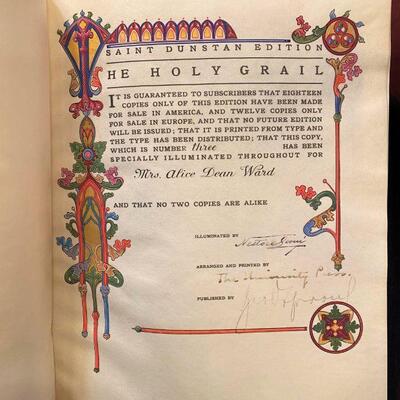 SAINT DUNSTAN EDITION
THE HOLY GRAIL
IT IS GUARANTEED TO SUBSCRIBERS THAT EIGHTEEN
COPIES ONLY OF THIS EDITION HAVE BEEN MADE
FOR SALE IN AMERICA, AND TWELVE COPIES ONLY
FOR SALE IN EUROPE, AND THAT NO FUTURE EDITION
WILL BE ISSUED; THAT IT IS PRINTED FROM TYPE AND
THE TYPE HAS BEEN DISTRIBUTED; THAT THIS COPY,
WHICH IS NUMBER three HAS BEEN
SPECIALLY ILLUMINATED THROUGHOUT FOR
Mrs. Alice Dean Ward
AND THAT NO TWO COPIES ARE ALIKE
ILLUMINATED BY
ARRANGED AND PRINTED BY
The University Press
PUBLISHED BY